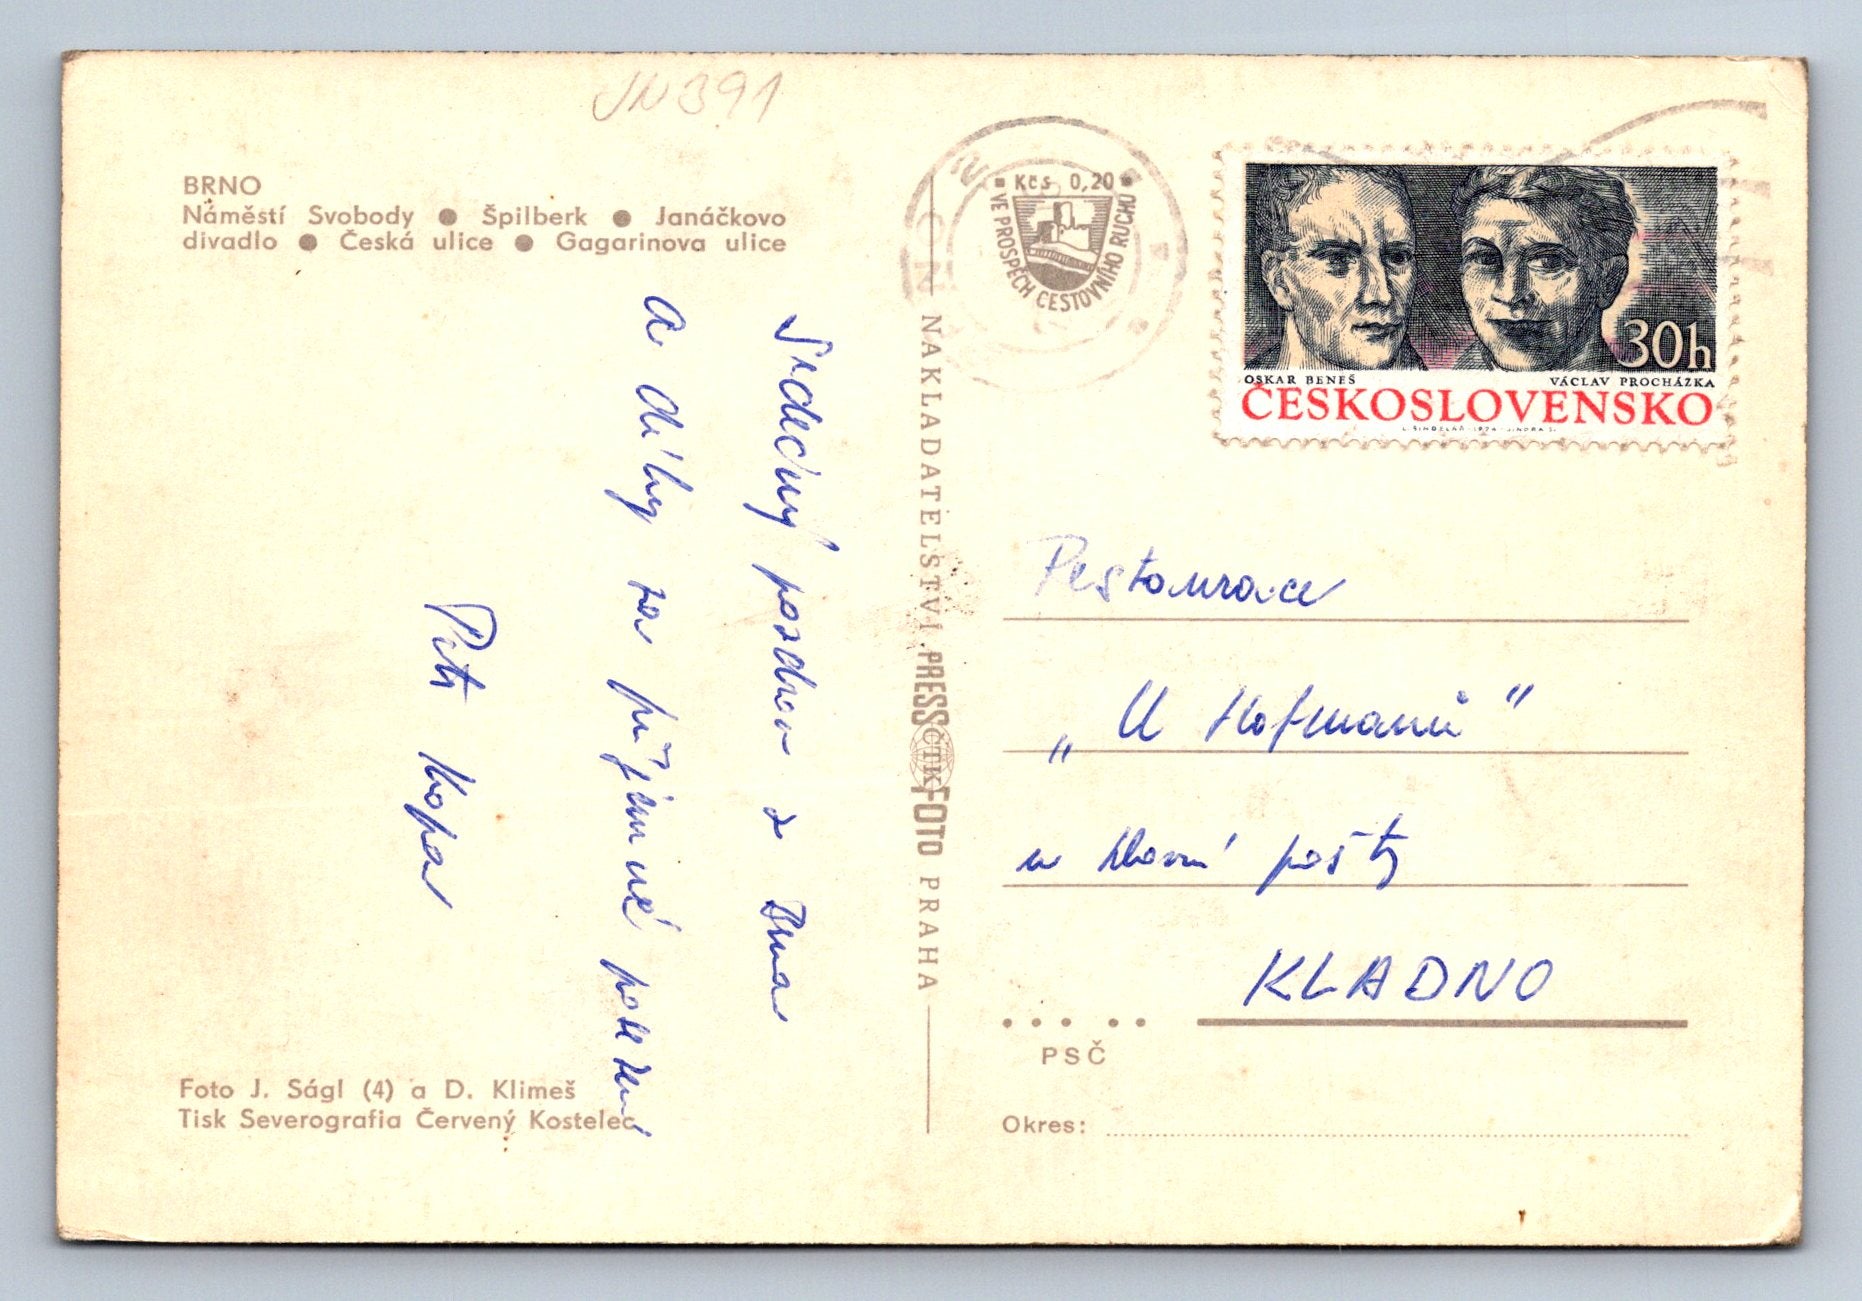 JN391
BRNO
Náměstí Svobody ● Špilberk ● Janáčkovo
divadlo ● Česká ulice ● Gagarinova ulice
Srdečný pozdrav z Brna
a díky za příjemné posezení
Petr Kopa
Foto J. Ságl (4) a D. Klimeš
Tisk Severografia Červený Kostelec
NAKLADATELSTVÍ PRESSFOTO PRAHA
ČTK
Kčs 0,20
VE PROSPĚCH CESTOVNÍHO RUCHU
30h
OSKAR BENEŠ VÁCLAV PROCHÁZKA
ČESKOSLOVENSKO
L. ŠINDELÁŘ - 1974 - JINDRA S.
Restaurace
„U Hofmanů"
u hlavní pošty
KLADNO
PSČ
Okres: